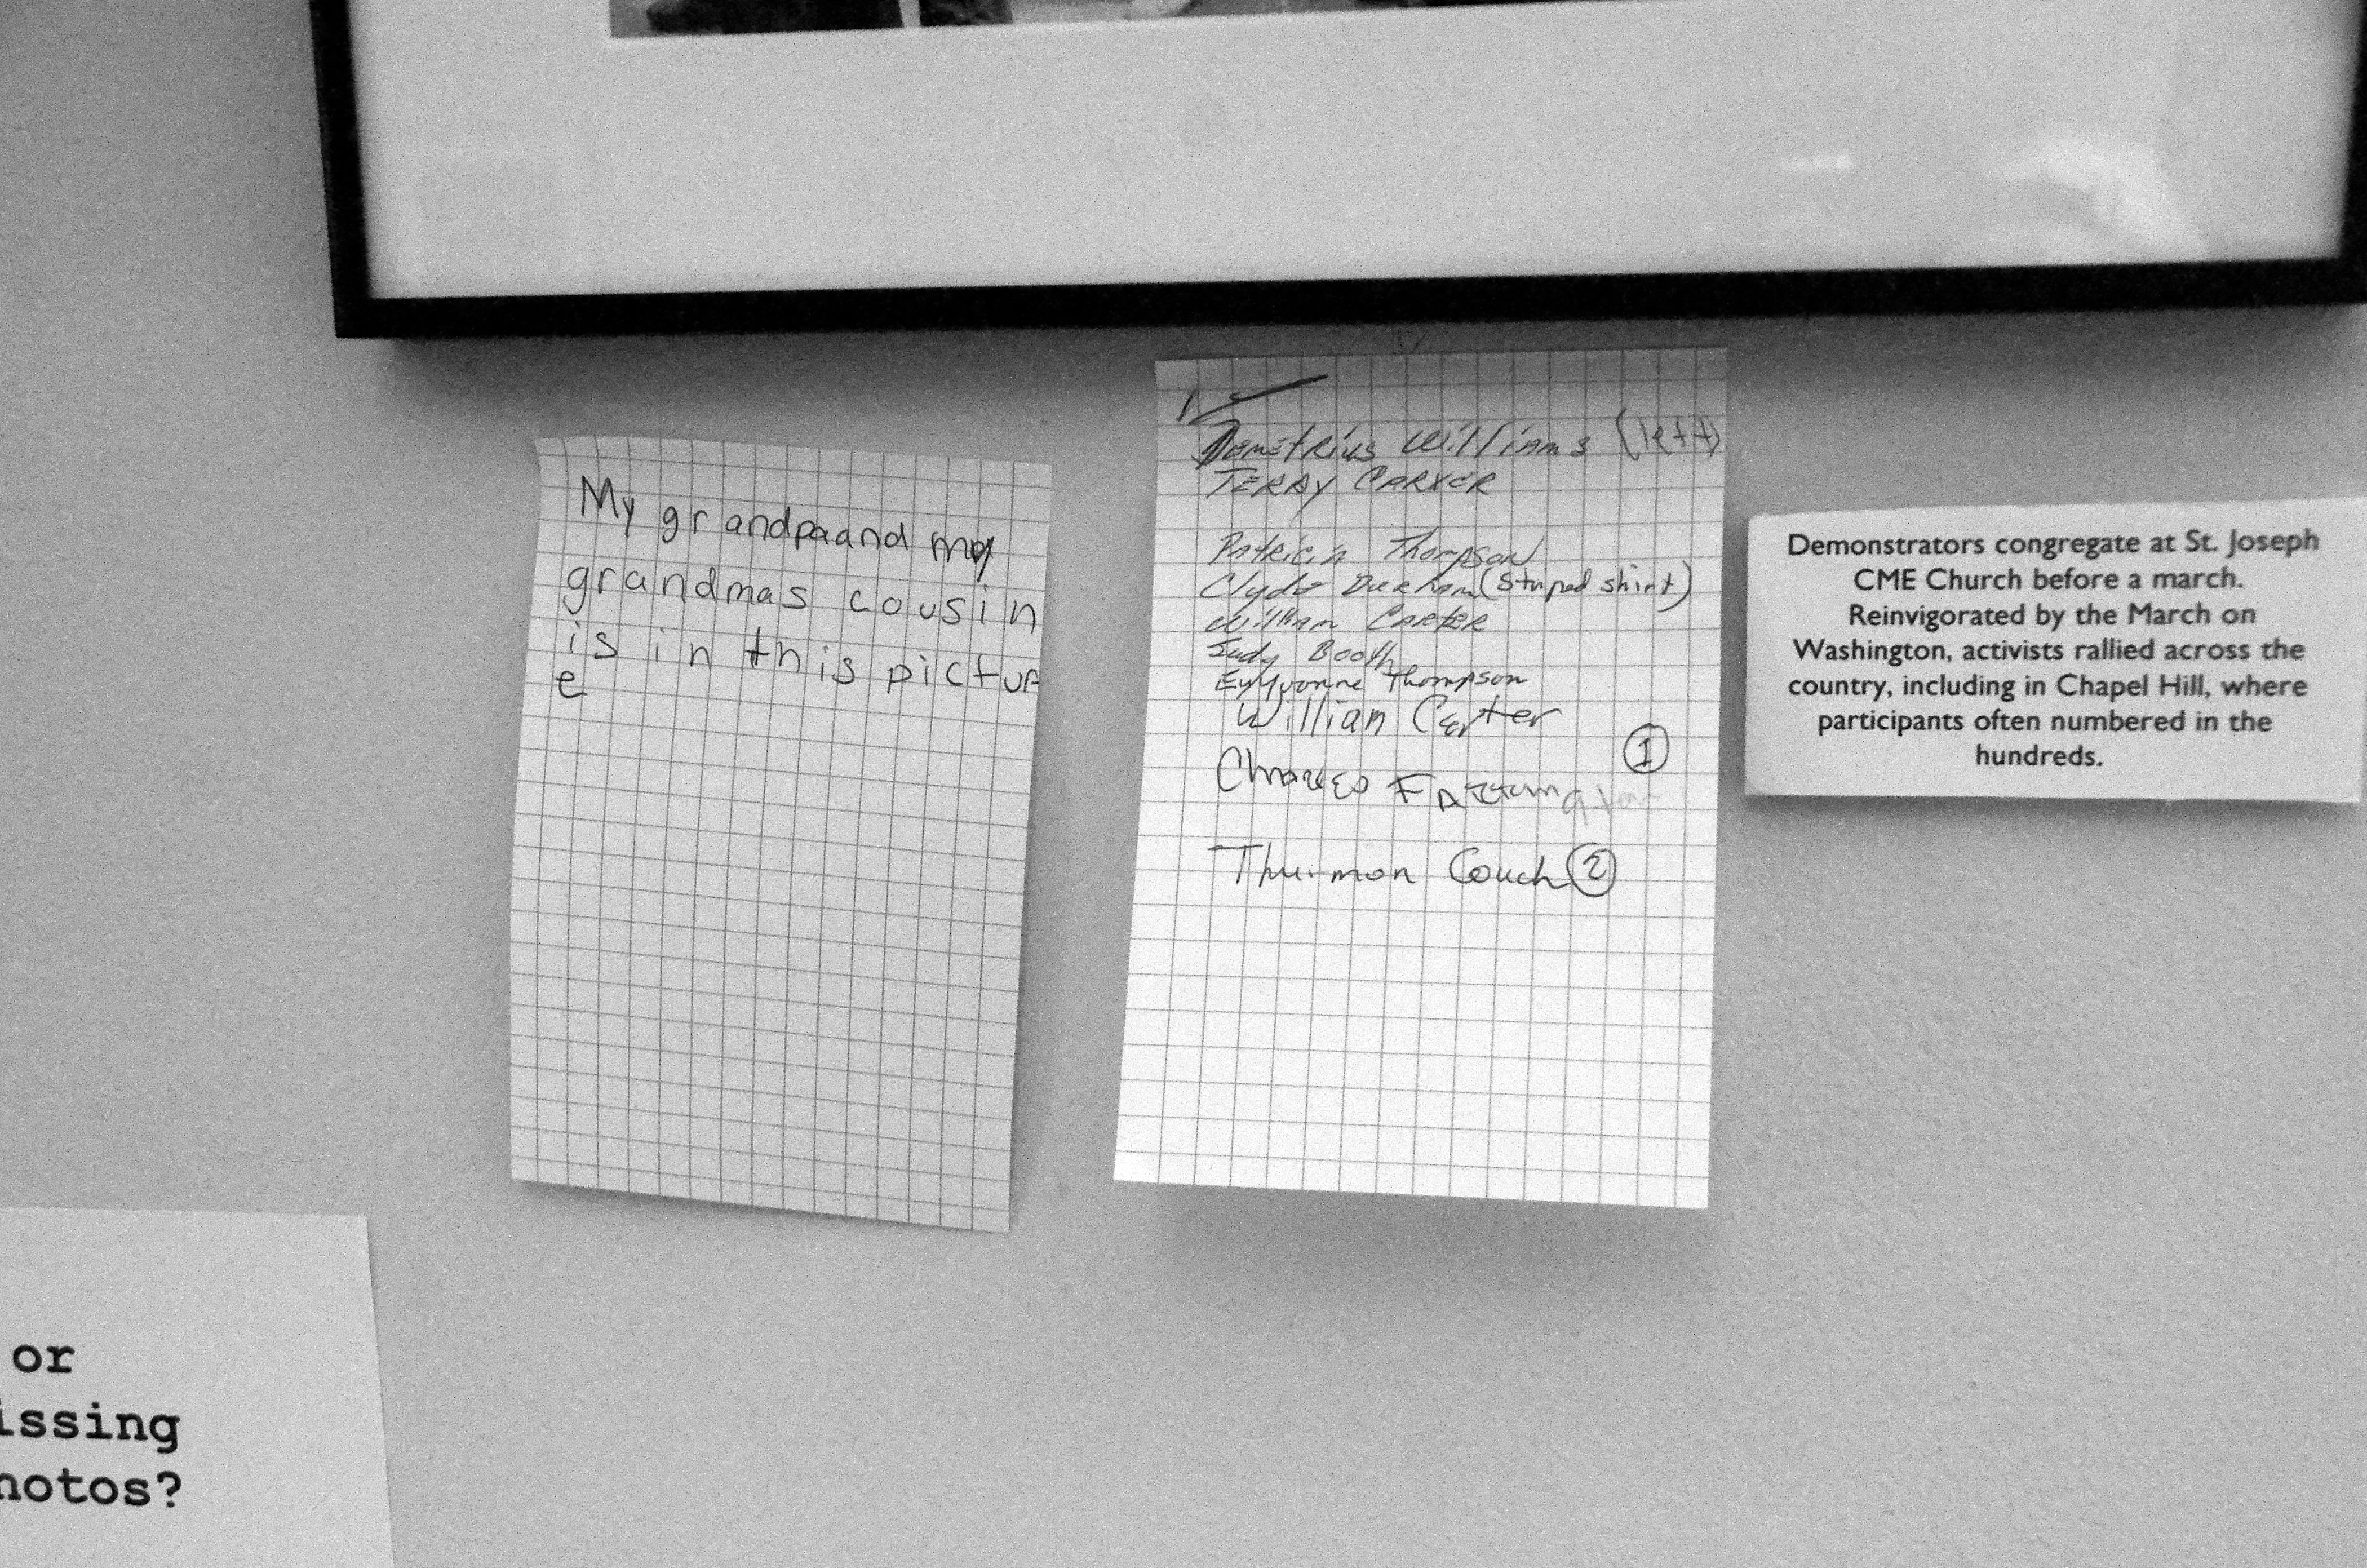 My grandpa and my
grandmas cousin
is in this pictur
e
Demetrius Williams (left)
TERRY CARVER
Patricia Thompson
Clyde Durham (striped shirt)
William CARTER
Judy Booth
Eyvonne Thompson
William Carter
1
Charles
Thurmon Couch 2
Demonstrators congregate at St. Joseph
CME Church before a march.
Reinvigorated by the March on
Washington, activists rallied across the
country, including in Chapel Hill, where
participants often numbered in the
hundreds.
or
issing
hotos?